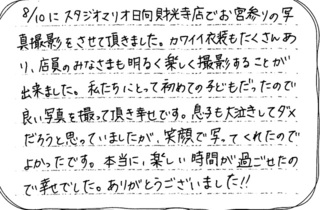 8/10にスタジオマリオ日向財光寺店でお宮参りの写
真撮影をさせて頂きました。カワイイ衣装もたくさんあ
り、店員のみなさまも明るく楽しく撮影することが
出来ました。私たちにとって初めての子どもだったので
良い写真を撮って頂き幸せです。息子も大泣きしてダメ
だろうと思っていましたが、笑顔で写ってくれたので
よかったです。本当に、楽しい時間が過ごせたの
で幸せでした。ありがとうございました!!